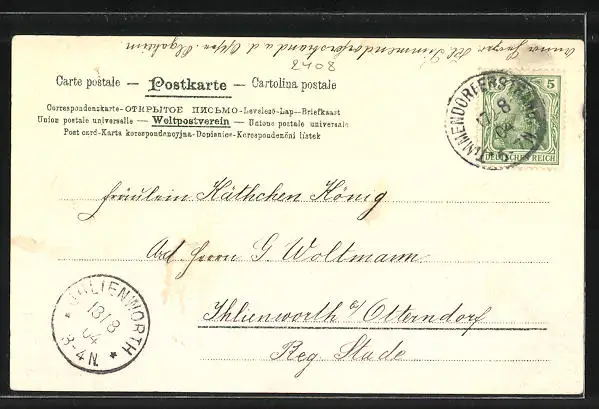 Anna Jaeger Hôt. Timmendorferstrand a. d. Ostsee
2408
Carte postale — Postkarte — Cartolina postale
Correspondenzkarte—ОТКРЫТОЕ ПИСЬМО—Levelező-Lap—Briefkaart
Union postale universelle — Weltpostverein — Unione postale universale
Post card-Karta korespondencyjna-Dopisnice-Korespondenční lístek
5
DEUTSCHES REICH
TIMMENDORFERSTRAND
13 8
04
Fräulein Käthchen König
Ad. Herrn G. Woltmann
Ihlienworth b/ Otterndorf
Reg Stade
IHLIENWORTH
13/8
04
3-4N.